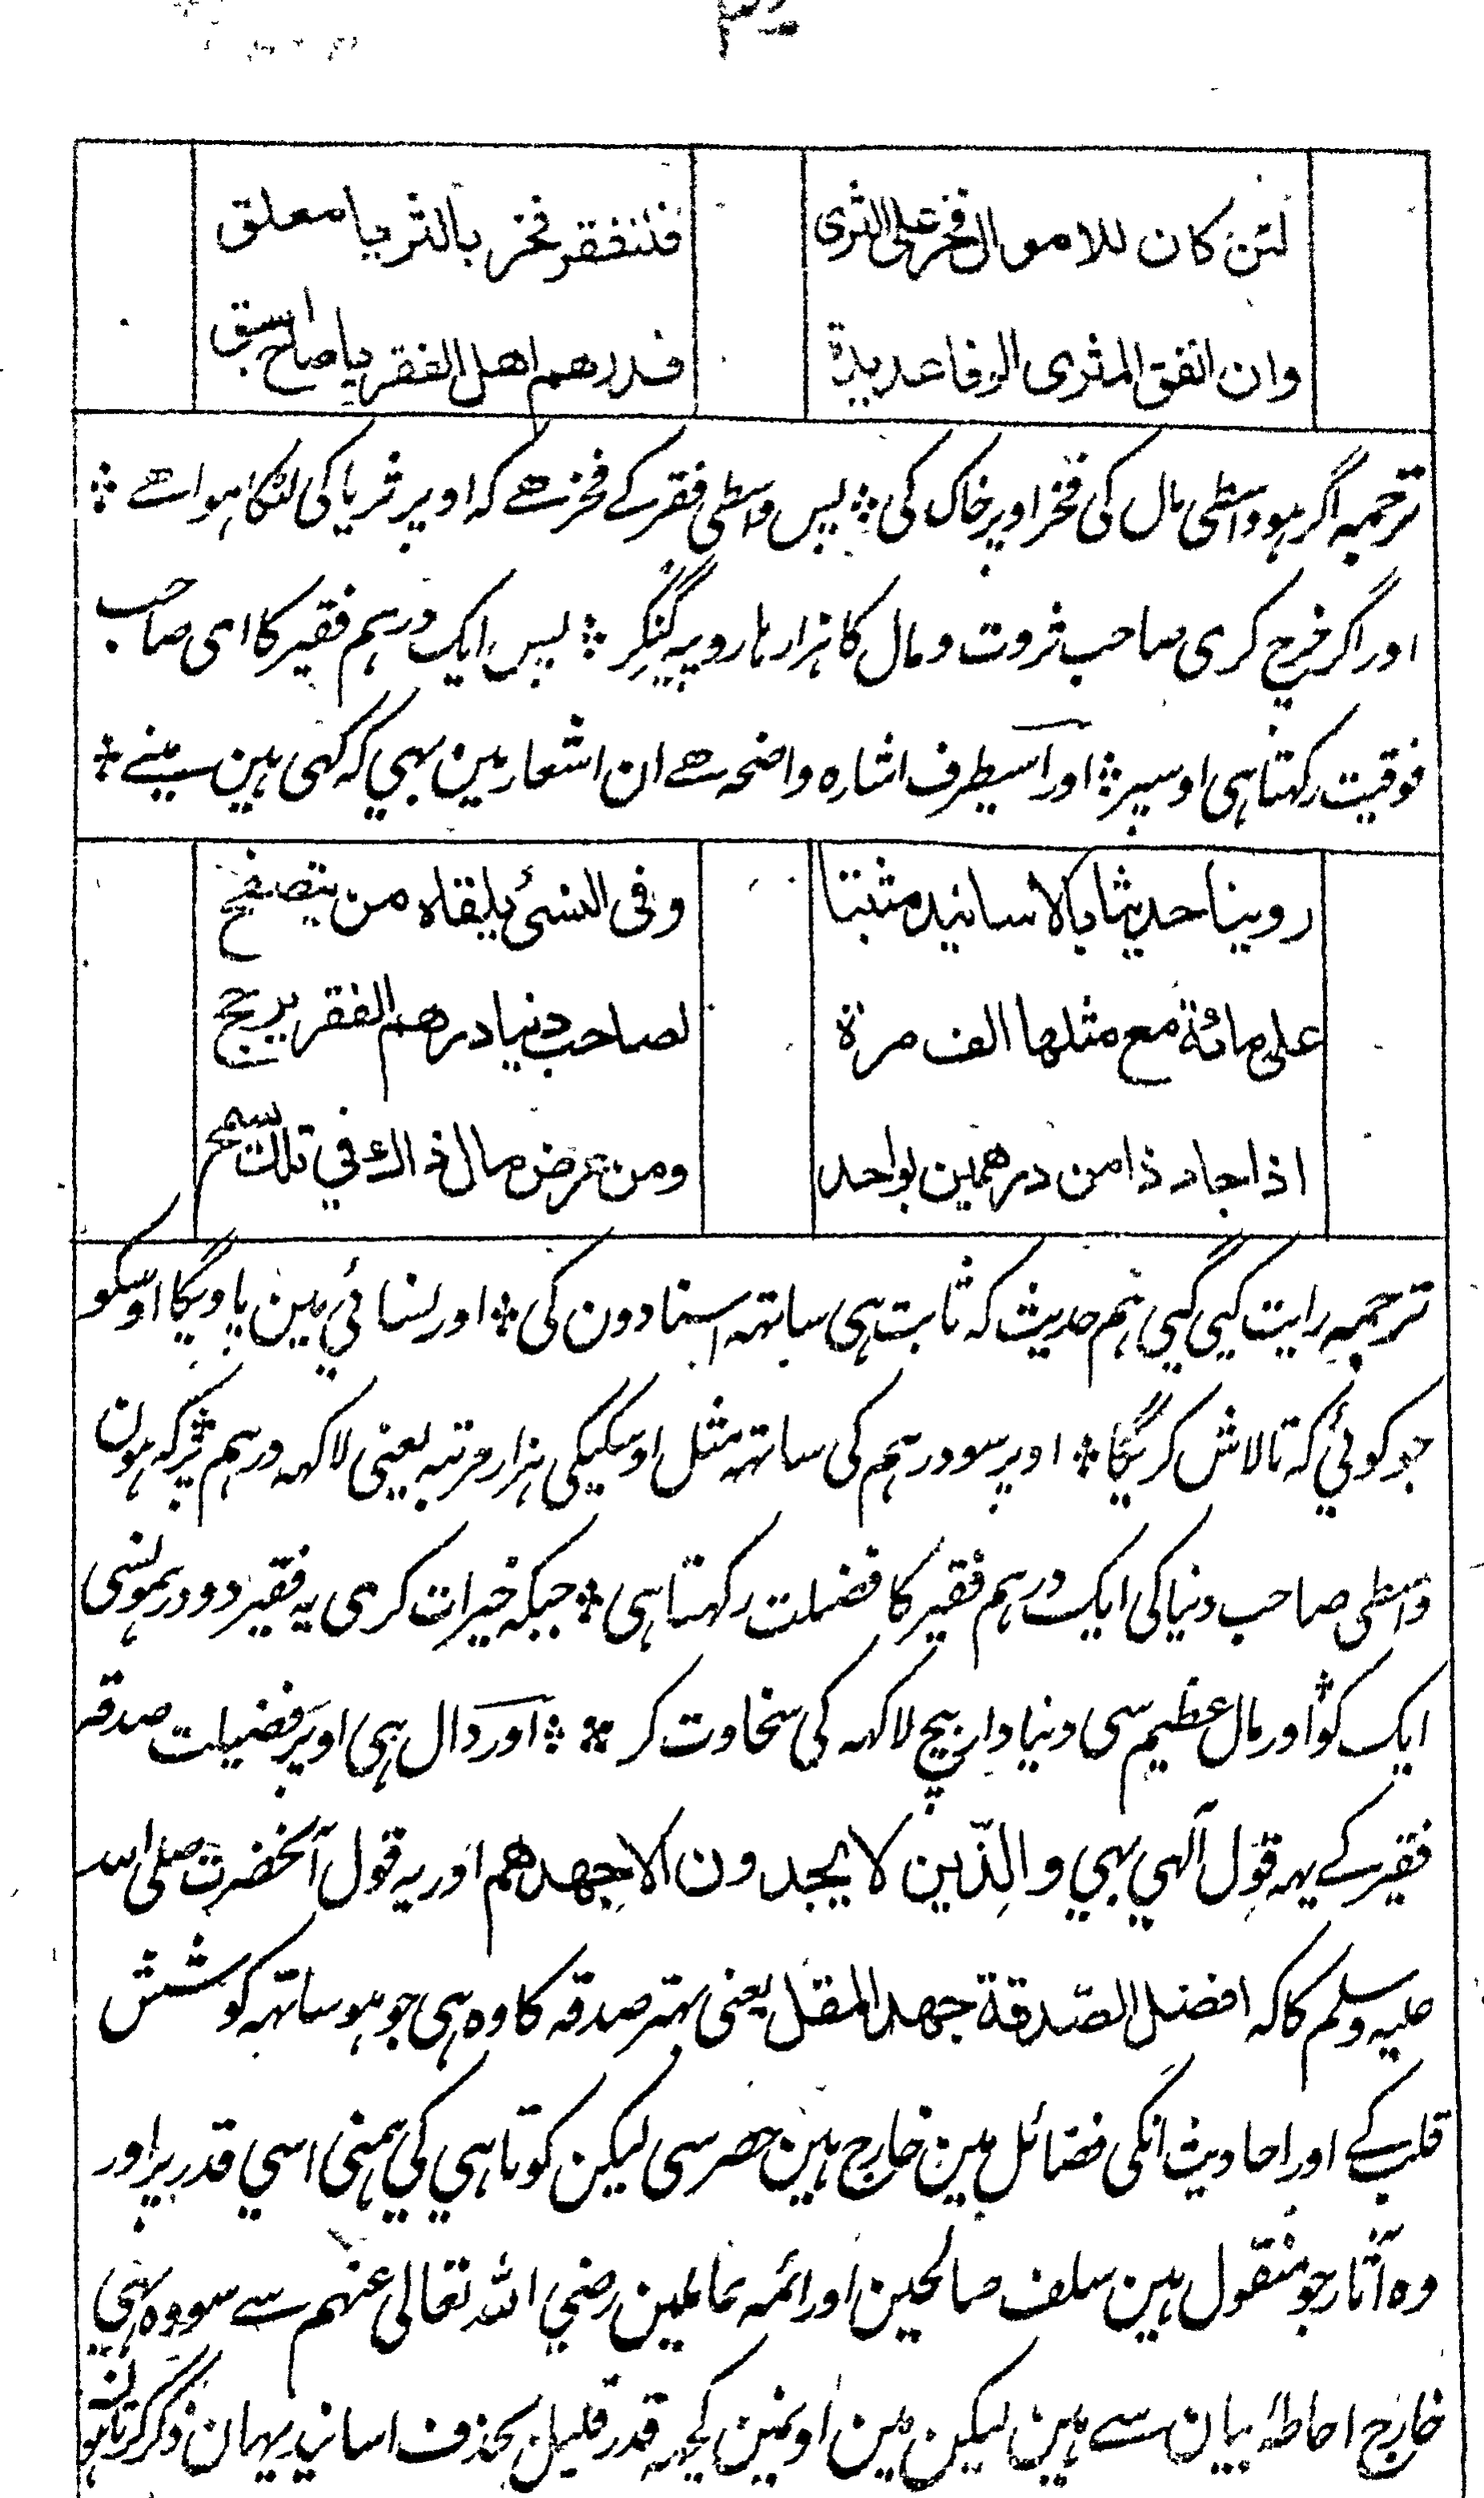 لئن كان للاموال فخر على الثرى فللفقر فخر بالثريا معلق
وان انفق المثرى الوفا عديدة فدرهم اهل الفقر يا صاح اسبق
ترجمہ اگر ہو واسطی مال کی فخر اوپر خاک کی ؞ پس واسطی فقر کے فخر ہے کہ اوپر ثریا کی لٹکا ہوا ہے ؞
اور اگر خرچ کری صاحب ثروت و مال کا ہزارہا روپیہ گنگر ؞ پس ایک درہم فقیر کا ای صاحب
فوقیت رکہتا ہی اوسپر ؞ اور اسیطرف اشارہ واضحہ ہے ان اشعار مین بہی کہ کہی ہین مینے ؞
روينا حديثا بالاسانيد مثبتا وفى النسئ يلقاه من يتصفح
على مائة مع مثلها الف مرة لصاحب دنيا درهم الفقر يرجح
اذا جاد ذا من درهمين بواحد ومن عرض مال ذاك في تلك سمح
ترجمہ رایت کیی گیی ہم حدیث کہ ثابت ہی ساتہہ اسنادون کی ؞ اور نسائي مین پاویگا اوسکو
جو کوئي کہ تالاش کریگا ؞ اوپر سو درہم کی ساتہہ مثل اوسکیکی ہزار مرتبہ یعنی لاکہہ درہم پر کہ ہون
واسطی صاحب دنیا کی ایک درہم فقیر کا فضلت رکہتا ہی ؞ جبکہ خیرات کری یہ فقیر دو درہمونسی
ایک کو ؞ اور مال عظیم سی دنیادار بیچ لاکہہ کی سخاوت کر ؞ ؞ اور دال ہی اوپر فضیلت صدقہ
فقیر کے یہہ قول آلہي بہي والذين لا يجدون الا جهدهم اور یہ قول آنحضرت صلی اللہ
علیہ وسلم کا کہ افضل الصّدقة جهد المقل یعنی بہتر صدقہ کا وہ ہی جو ہو ساتہہ کوشش
قلب کے اور احادیث انکی فضائل مین خارج ہین حصر سی لیکن کوتاہي کي ہمنی اسي قدر پر اور
وہ آثار جو منقول ہین سلف صالحین اور ائمہ عاملین رضي اللہ تعالی عنہم سے سو وہ بہي
خارج احاطۂ بیان سے ہین لیکن مین اونمین کچہہ قدر قلیل بحذف اسانید یہان ذکر کرتا ہون